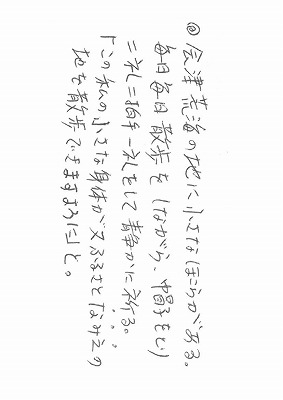 ◎会津荒海の地に小さなほこらがある。
毎日毎日散歩をしながら、帽子をとり
二礼二拍手一礼をして静かに祈る。
「この私の小さな身体が又ふるさとなみえの
地を散歩できますように」と。